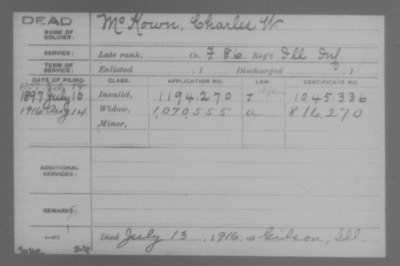 DEAD
NAME OF SOLDIER: McKown, Charles W.
SERVICE: Late rank, Co. F 86 Reg't Ill Inf
TERM OF SERVICE: Enlisted , 1 Discharged , 1
DATE OF FILING. CLASS. APPLICATION NO. LAW. CERTIFICATE NO.
1897 July 10 Invalid, 1194.270 1045.336
1916 Aug 14 Widow, 1,070,555 816,270
Minor,
ADDITIONAL SERVICES:
REMARKS:
Died July 13, 1916, at Gilson, Ill.